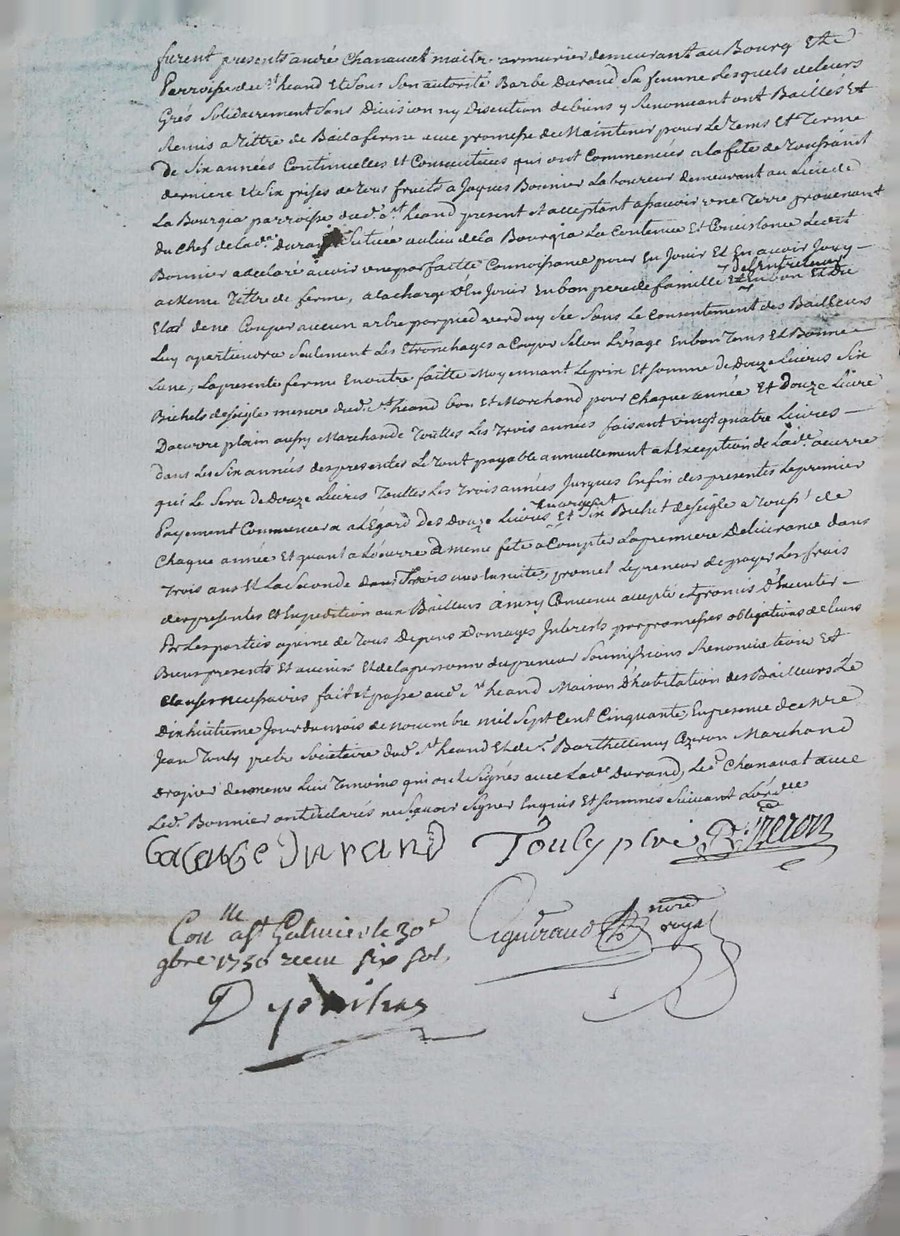 furent présents andré Chanavat maitre armurier demeurant au Bourg Et
Parroisse de st heand Et sous son autorité Barbe Durand sa femme Lesquels de leurs
Grés Solidairement sans Division ny Discution de biens y Renonceant ont Baillés Et
Remis a tittre de Bail a ferme avec promesse de Maintenir pour Le tems Et terme
De Six années Continuelles Et Consecutives qui ont Commencés a la fete de toussaint
derniere Et Six prises de tous fruits a Jaques Bonnier Laboureur demeurant au Lieu de
La Bourgia parroisse dud. st heand present Et acceptant a sçavoir une Terre provenant
du Chef de lad. durand scituée au lieu de la Bourgia La Contenue Et Consistance Ledit
Bonnier a declaré avoir une parfaitte Connoissance pour En Jouir Et En avoir Joüy
au meme tittre de ferme, a la charge d'En Jouir En bon pere de famille L'entretenir En bon Et Du
Etat de ne Couper aucun arbre par pied verd ny sec Sans Le Consentement des Bailleurs
Luy apartiendra Seulement Les Etronchages a Couper Selon L'usage En bon tems Et Bonne
Lune, La presente ferme En outre faitte Moyennant Le prix Et somme de Douze Livres Six
Bichets de seigle mesure dud. st heand bon Et Marchand pour Chaque année Et douze Livre
D'oeuvre plain aussy Marchande Toutes Les trois années faisant vingt quatre Livres
dans Les Six années des presentes Le tout payable annuellement a L'Exception de Lad. oeuvre
qui Le Sera de Douze Livres Toutes Les trois années Jusques En fin des presentes Le premier
Payement Commencera a L'Egard des Douze Livres En argent Et Six Bichet de seigle a touss.t de
Chaque année Et quant a L'oeuvre a meme fete a Compter La premiere Delivrance dans
trois ans Et La Seconde dans trois ans Ensuite, promet Le preneur de payer Les frais
des presentes Et Expedition aux Bailleurs ainsy Convenu accepté Et promis D'Executer
Par Les parties a peine de tous Depens Domages Interets par promesses obligations de leurs
Biens presents Et avenirs Et de la personne du preneur Soumissions Renonciations Et
Clauses necessaires fait Et passé aud. st heand Maison D'habitation des Bailleurs Le
Dixhuitieme Jour du mois de novembre mil Sept Cent Cinquante En presence de Mre
Jean Touly pretre Societaire dud. st heand Et de sr. Barthellemy Marchand
Drapier de meme Lieu Temoins qui ont Signés avec Lad. Durand, Led. Chanavat avec
Led. Bonnier ont declarés ne sçavoir Signer Enquis Et sommés Suivant L'ord.ce
Barbe Durand Touly ptre
Con.lle a st Galmier le 30e
9bre 1750 recu six sol. nore royal